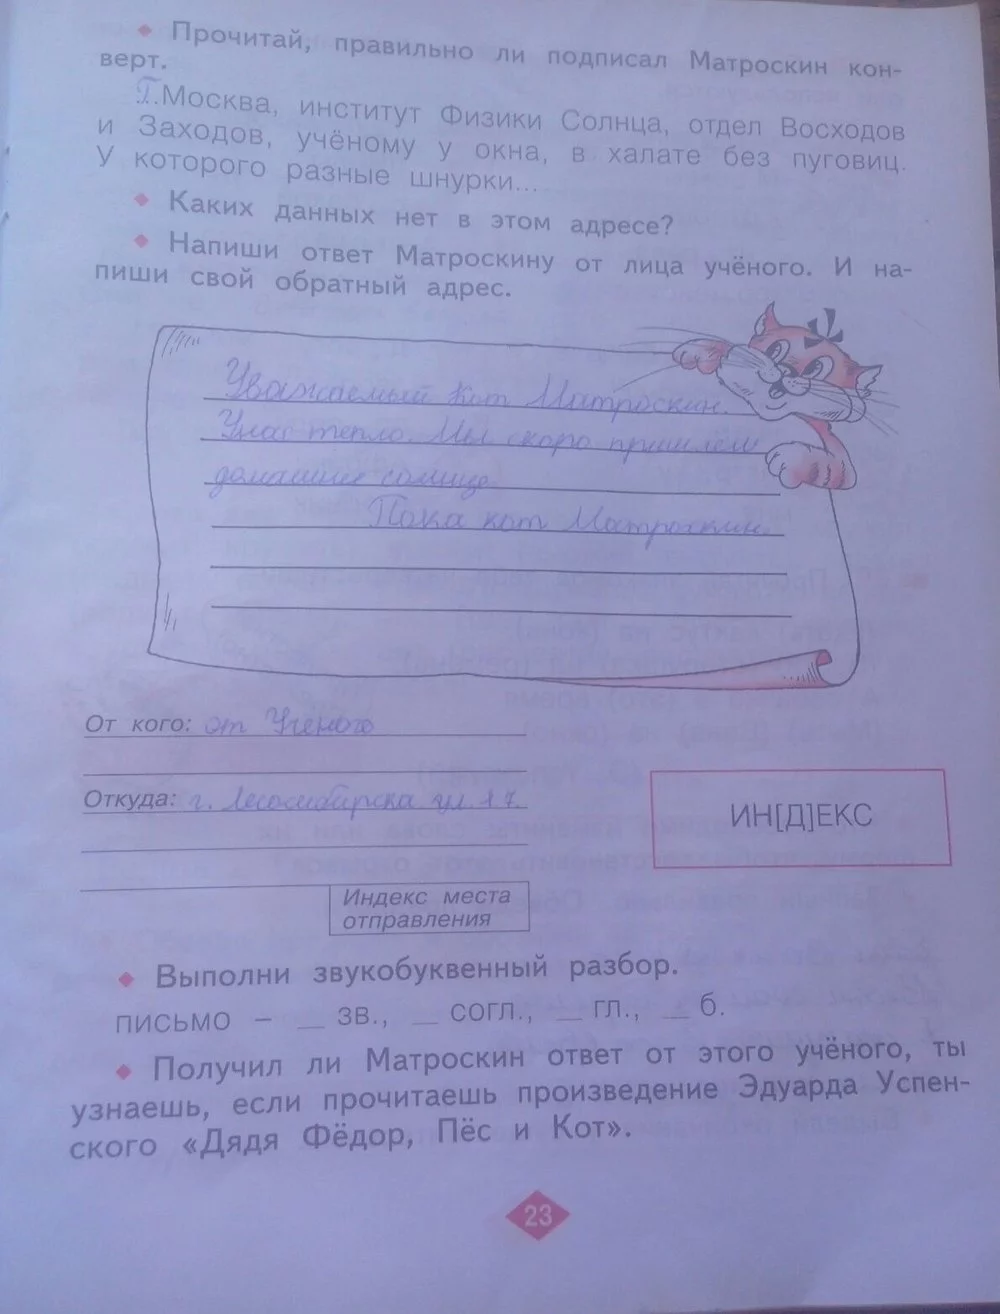 • Прочитай, правильно ли подписал Матроскин кон-
верт.
Г.Москва, институт Физики Солнца, отдел Восходов
и Заходов, учёному у окна, в халате без пуговиц.
У которого разные шнурки...
• Каких данных нет в этом адресе?
• Напиши ответ Матроскину от лица учёного. И на-
пиши свой обратный адрес.
Уважаемый Кот Матроскин.
Унас тепло. Мы скоро пришлём
домашние солнце
Пока кот Матроскин.
От кого: от Ученого
Откуда: г. Лесосибирска ул. 17.
ИН[Д]ЕКС
Индекс места
отправления
• Выполни звукобуквенный разбор.
ПИСЬМО – __ ЗВ., __ СОГЛ., __ ГЛ., __ Б.
• Получил ли Матроскин ответ от этого учёного, ты
узнаешь, если прочитаешь произведение Эдуарда Успен-
ского «Дядя Фёдор, Пёс и Кот».
23